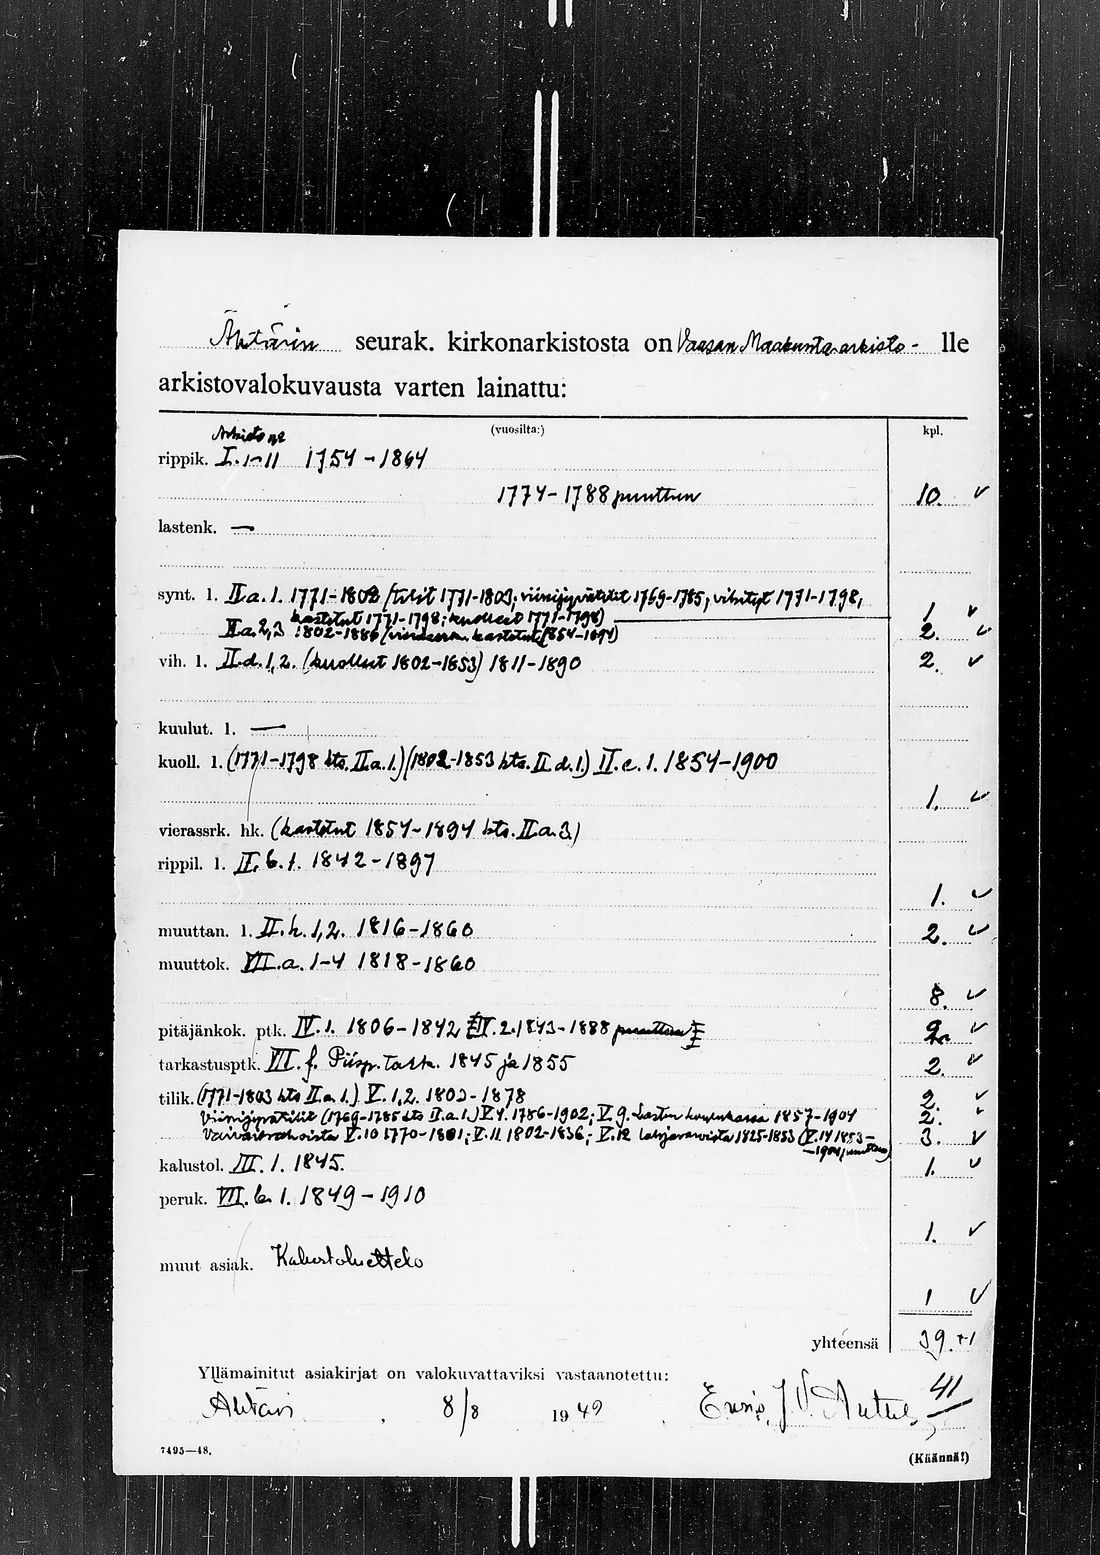 Ähtärin seurak. kirkonarkistosta on Vaasan Maakunta-arkisto- lle
arkistovalokuvausta varten lainattu:
(vuosilta:) kpl.
Arkisto n:o
rippik. I. 1-11 1754-1864
1774-1788 puuttuu 10. v
lastenk. —
synt. l. II a. 1. 1771-1802 (tilit 1771-1803; viinijyvätilit 1769-1785; vihityt 1771-1798,
kastetut 1771-1798; kuolleet 1771-1798) 1 v
II a. 2,3 1802-1886 (vierassrk. kastetut 1854-1894) 2. v
vih. l. II.d. 1,2. (kuolleet 1802-1853) 1811-1890 2. v
kuulut. l. —
kuoll. l. (1771-1798 kts. II a. 1.) (1802-1853 kts. II. d. 1.) II. e. 1. 1854-1900
1. v
vierassrk. hk. (kastetut 1854-1894 kts. II a. 3)
rippil. l. II. b. 1. 1842-1897
1. v
muuttan. l. II. h. 1,2. 1816-1860 2. v
muuttok. VII. a. 1-4 1818-1860
8. v
pitäjänkok. ptk. IV. 1. 1806-1842 IV. 2. 1843-1888 puuttuu 2. v
tarkastusptk. III. f. Piisp. tark. 1845 ja 1855 2. v
tilik. (1771-1803 kts II a. 1.) V. 1,2. 1802-1878 2. v
Viinijyvätilit (1769-1785 kts II. a. 1.) V. 4. 1786-1902; V. 9. Lasten koulukassa 1857-1904 2. v
Vaivaisrahoista V. 10 1770-1801; V. 11. 1802-1836; V. 12 lahjavaroista 1825-1853 (V. 14 1853- 3. v
-1901 puuttuu)
kalustol. III. 1. 1845. 1. v
peruk. VII. b. 1. 1849-1910
1. v
muut asiak. Kalustoluettelo
1 v
yhteensä 39. +1
Yllämainitut asiakirjat on valokuvattaviksi vastaanotettu: 41
Ähtäri , 8/8 1949 . J. V.
7495—48. (Käännä!)